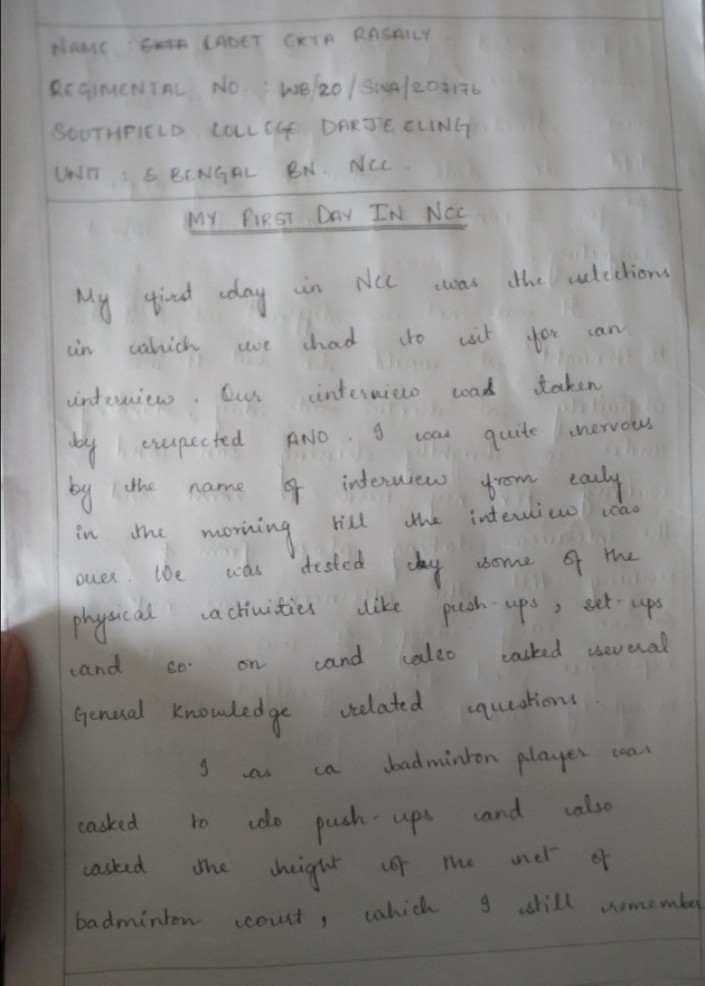 NAME : EKTA CADET EKTA RASAILY
REGIMENTAL NO : WB/20/SWA/207176
SOUTHFIELD COLLEGE DARJEELING
UNIT : 5 BENGAL BN. NCC.
MY FIRST DAY IN NCC
My first day in NCC was the selections
in which we had to sit for an
interview. Our interview was taken
by respected ANO. I was quite nervous
by the name of interview from early
in the morning till the interview was
over. We was tested by some of the
physical activities like push-ups, set-ups
and so on and also asked several
General Knowledge related questions.
I as a badminton player was
asked to do push-ups and also
asked the height of the net of
badminton court, which I still remember